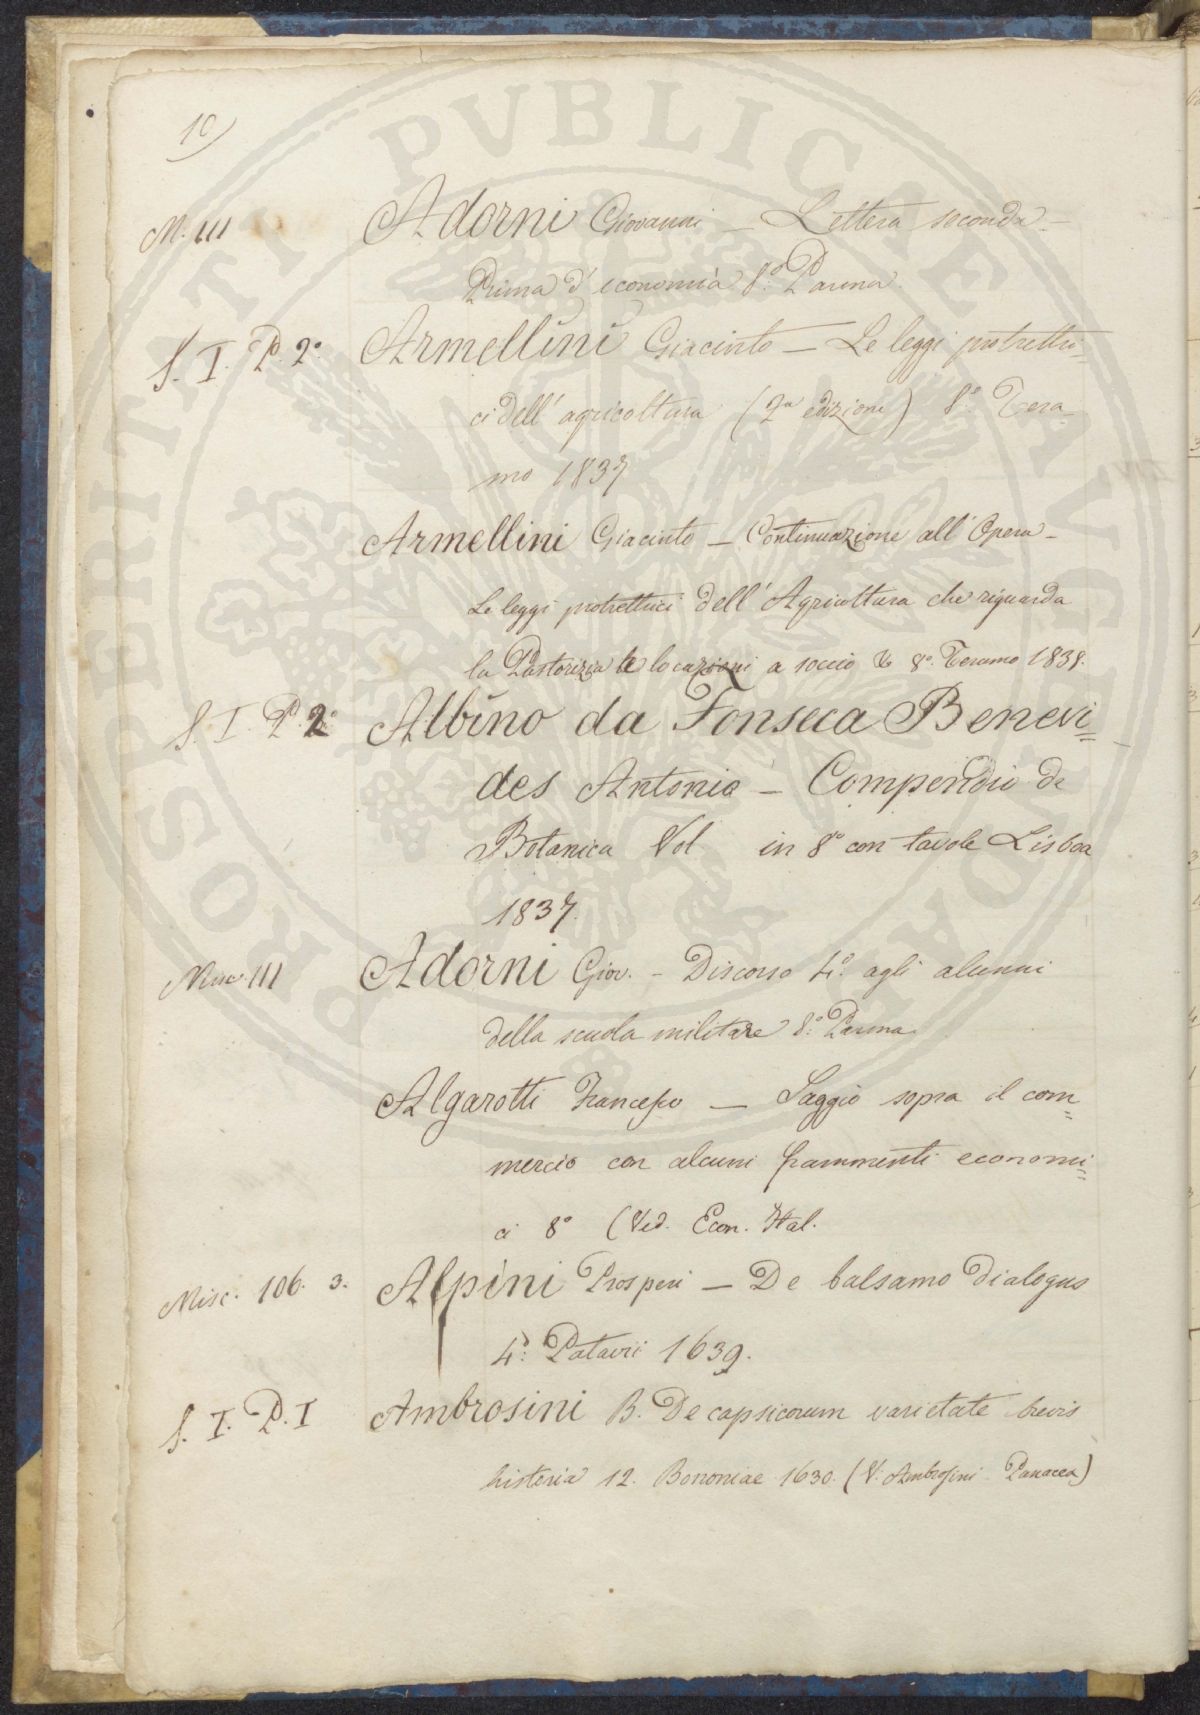 10
M. 111 Adorni Giovanni — Lettera seconda —
Prima d'economia 8.° Parma.
S. I. P. 2.° Armellini Giacinto — Le leggi protrettri=
ci dell'agricoltura (2a edizione) 8.° Tera=
mo 1837
Armellini Giacinto — Continuazione all'Opera —
Le leggi protrettrici dell'Agricoltura che riguarda
la Pastorizia le locazioni a soccio & 8.° Teramo 1838.
S. I. P. 2.° Albino da Fonseca Benevi=
des Antonio — Compendio de
Botanica Vol in 8° con tavole Lisboa
1837.
Misc. 111 Adorni Giov. — Discorso 4.° agli alunni
della scuola militare 8.° Parma
Algarotti Francesco — Saggio sopra il com=
mercio con alcuni frammenti economi=
ci 8° (Ved. Econ. Ital.
Misc. 106. 3. Alpini Prosperi — De balsamo Dialogus
4.° Patavii 1639.
S. I. P. I Ambrosini B. De capsicorum varietate brevis
historia 12. Bononiae 1630. (V. Ambrosini Panacea)
PROSPERITATI PVBLICAE AVGENDAE